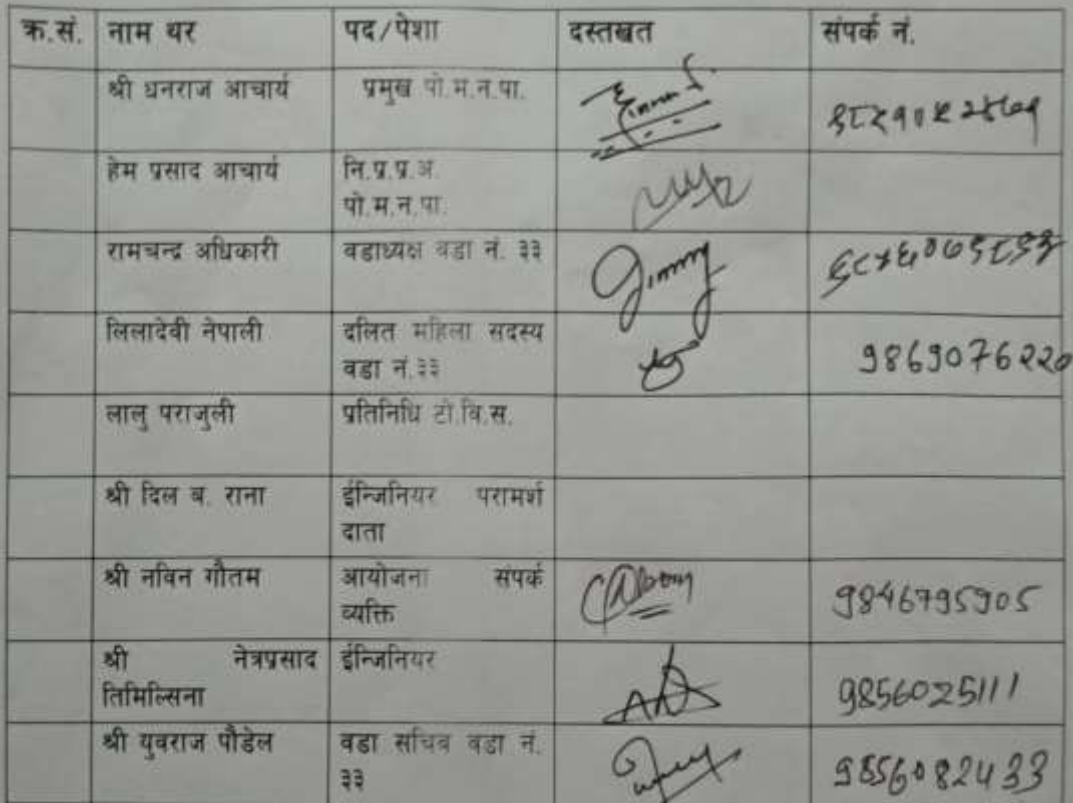 क्र.सं. नाम थर पद/पेशा दस्तखत संपर्क नं.
श्री धनराज आचार्य प्रमुख पो.म.न.पा.
हेम प्रसाद आचार्य नि.प्र.प्र.अ.
पो.म.न.पा.
रामचन्द्र अधिकारी वडाध्यक्ष वडा नं. ३३
लिलादेवी नेपाली दलित महिला सदस्य
वडा नं.३३ 9869076220
लालु पराजुली प्रतिनिधि टो.वि.स.
श्री दिल ब. राना ईन्जिनियर परामर्श
दाता
श्री नविन गौतम आयोजना संपर्क
व्यक्ति 9846795905
श्री नेत्रप्रसाद ईन्जिनियर
तिमिल्सिना 9856025111
श्री युवराज पौडेल वडा सचिव वडा नं.
३३ 9856082433